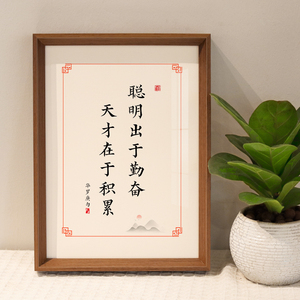 聪明出于勤奋
天才在于积累
华罗庚